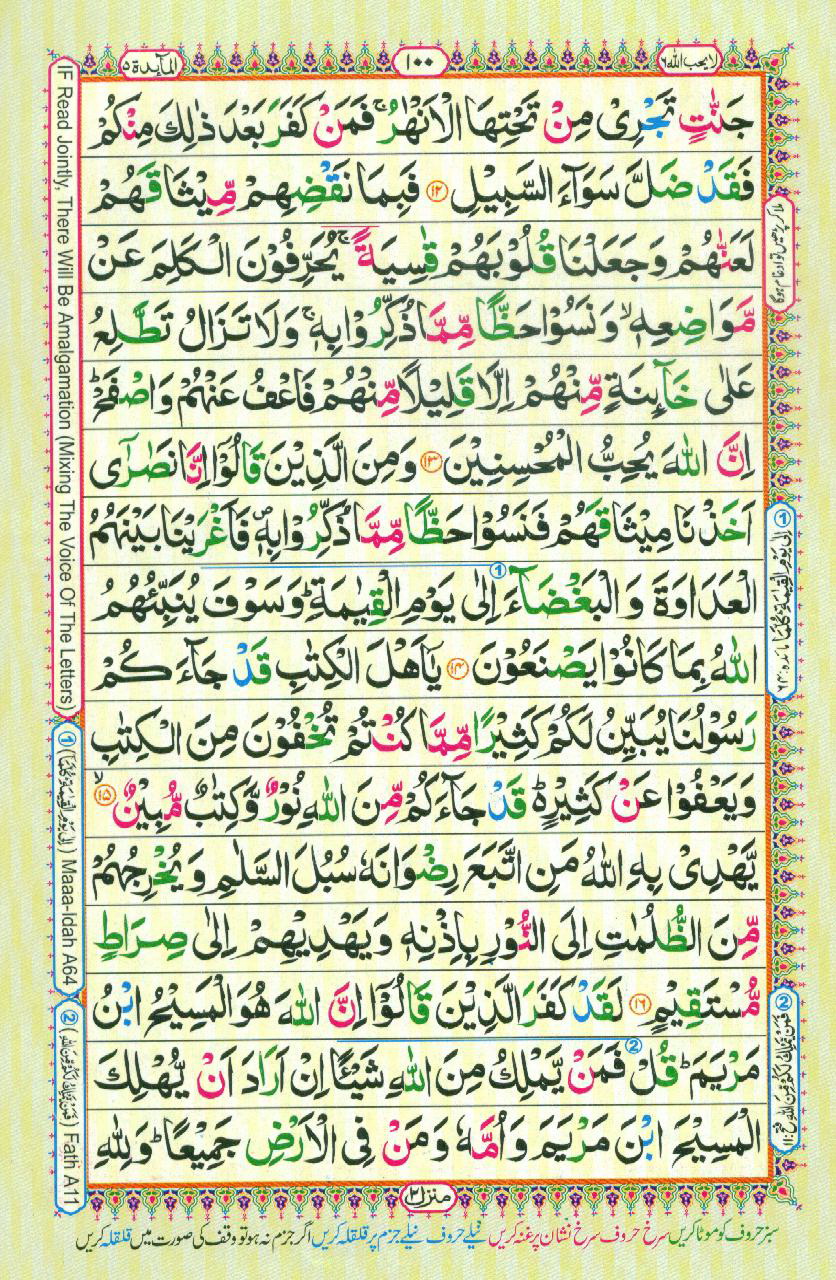 لا یحب الله ٦
١٠٠
المآىِٕدة ٥
جَنّٰتٍ تَجْرِیْ مِنْ تَحْتِهَا الْاَنْهٰرُ ۚ فَمَنْ كَفَرَ بَعْدَ ذٰلِكَ مِنْكُمْ
فَقَدْ ضَلَّ سَوَآءَ السَّبِیْلِ ۝۱۲ فَبِمَا نَقْضِهِمْ مِّیْثَاقَهُمْ
لَعَنّٰهُمْ وَ جَعَلْنَا قُلُوْبَهُمْ قٰسِیَةً ۚ یُحَرِّفُوْنَ الْكَلِمَ عَنْ
مَّوَاضِعِهٖ ۙ وَ نَسُوْا حَظًّا مِّمَّا ذُكِّرُوْا بِهٖ ۚ وَ لَا تَزَالُ تَطَّلِعُ
عَلٰی خَآىِٕنَةٍ مِّنْهُمْ اِلَّا قَلِیْلًا مِّنْهُمْ فَاعْفُ عَنْهُمْ وَ اصْفَحْ ؕ
اِنَّ اللّٰهَ یُحِبُّ الْمُحْسِنِیْنَ ۝۱۳ وَ مِنَ الَّذِیْنَ قَالُوْۤا اِنَّا نَصٰرٰۤی
اَخَذْنَا مِیْثَاقَهُمْ فَنَسُوْا حَظًّا مِّمَّا ذُكِّرُوْا بِهٖ ۪ فَاَغْرَیْنَا بَیْنَهُمُ
الْعَدَاوَةَ وَ الْبَغْضَآءَ اِلٰی یَوْمِ الْقِیٰمَةِ ؕ وَ سَوْفَ یُنَبِّئُهُمُ
اللّٰهُ بِمَا كَانُوْا یَصْنَعُوْنَ ۝۱۴ یٰۤاَهْلَ الْكِتٰبِ قَدْ جَآءَكُمْ
رَسُوْلُنَا یُبَیِّنُ لَكُمْ كَثِیْرًا مِّمَّا كُنْتُمْ تُخْفُوْنَ مِنَ الْكِتٰبِ
وَ یَعْفُوْا عَنْ كَثِیْرٍ ؕ۬ قَدْ جَآءَكُمْ مِّنَ اللّٰهِ نُوْرٌ وَّ كِتٰبٌ مُّبِیْنٌ ۝۱۵ۙ
یَّهْدِیْ بِهِ اللّٰهُ مَنِ اتَّبَعَ رِضْوَانَهٗ سُبُلَ السَّلٰمِ وَ یُخْرِجُهُمْ
مِّنَ الظُّلُمٰتِ اِلَی النُّوْرِ بِاِذْنِهٖ وَ یَهْدِیْهِمْ اِلٰی صِرَاطٍ
مُّسْتَقِیْمٍ ۝۱۶ لَقَدْ كَفَرَ الَّذِیْنَ قَالُوْۤا اِنَّ اللّٰهَ هُوَ الْمَسِیْحُ ابْنُ
مَرْیَمَ ؕ قُلْ فَمَنْ یَّمْلِكُ مِنَ اللّٰهِ شَیْـًٔا اِنْ اَرَادَ اَنْ یُّهْلِكَ
الْمَسِیْحَ ابْنَ مَرْیَمَ وَ اُمَّهٗ وَ مَنْ فِی الْاَرْضِ جَمِیْعًا ؕ وَ لِلّٰهِ
منزل ۲
سبز حروف کو موٹا کریں سرخ حروف سرخ نشان پر غنہ کریں نیلے حروف نیلے جزم پر قلقلہ کریں اگر جزم نہ ہو تو وقف کی صورت میں قلقلہ کریں
IF Read Jointly, There Will Be Amalgamation (Mixing The Voice Of The Letters)
① (اِلٰی یَوْمِ الْقِیٰمَةِ كُلَّمَا) Maaa-Idah A64
② (فَمَنْ یَّمْلِكُ لَكُمْ مِّنَ اللّٰهِ) Fath A11
① اِلٰی یَوْمِ الْقِیٰمَةِ كُلَّمَا مائدہ : ٦٤
② فَمَنْ یَّمْلِكُ لَكُمْ مِّنَ اللّٰهِ فتح : ١١